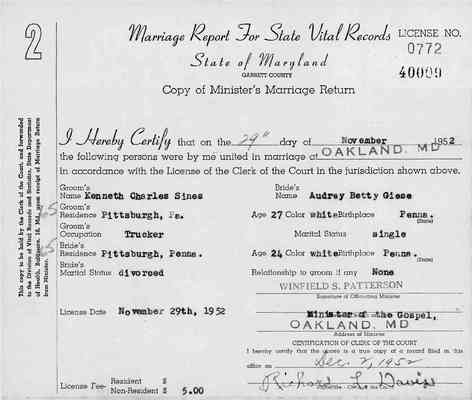 2
Marriage Report For State Vital Records
LICENSE NO.
0772
State of Maryland
GARRETT COUNTY
40009
Copy of Minister's Marriage Return
I Hereby Certify that on the 29" day of November 1952
the following persons were by me united in marriage at OAKLAND, MD
in accordance with the License of the Clerk of the Court in the jurisdiction shown above.
Groom's Name Kenneth Charles Sines
Bride's Name Audrey Betty Giese
Groom's Residence Pittsburgh, Pa.
Age 27 Color white Birthplace Penna.
(State)
Groom's Occupation Trucker
Marital Status single
Bride's Residence Pittsburgh, Penna.
Age 24 Color white Birthplace Penna.
(State)
Bride's Marital Status divorced
Relationship to groom if any None
WINFIELD S. PATTERSON
Signature of Officiating Minister
License Date November 29th, 1952
Minister of the Gospel,
OAKLAND, MD
Address of Minister
CERTIFICATION OF CLERK OF THE COURT
I hereby certify that the above is a true copy of a record filed in this
office on Dec. 2, 1952
Richard L. Davis
License Fee- Resident $
Non-Resident $ 5.00
This copy to be held by the Clerk of the Court, and forwarded
to the Division of Vital Records and Statistics, State Department
of Health, Baltimore, 18, Md., upon receipt of Marriage Return
from Minister.
65
65